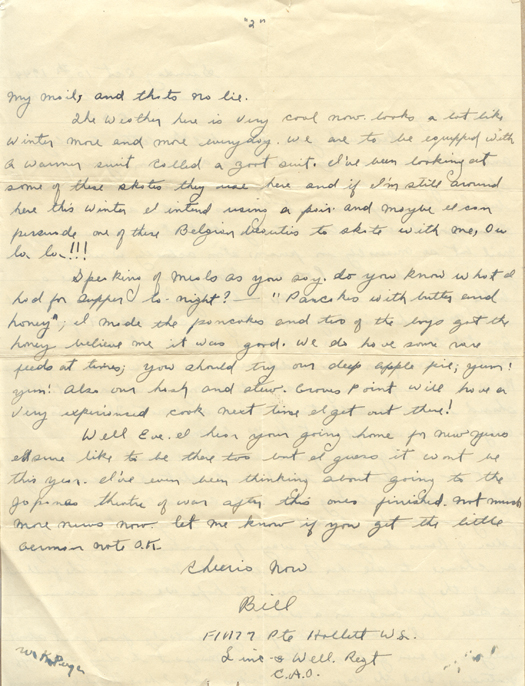 "2"
my mail, and thats no lie.
The weather here is very cool now. looks a lot like
winter more and more everyday. we are to be equpped with
a warmer suit called a zoot suit. I've been looking at
some of these skates they use here and if I'm still around
here this winter I intend using a pair and maybe I can
persuade one of these Belgian beauties to skate with me, Ou
la la!!!
Speaking of meals as you say. do you know what I
had for supper to-night? — "Pancakes with butter and
honey"; I made the pancakes and two of the boys got the
honey believe me it was good. We do have some rare
feeds at times; you should try our deep apple pie; yum!
yum! Also our hash and stew. Groves Point will have a
very experienced cook next time I get out there!
Well Eve. I hear your going home for new years
I sure like to be there too but I guess it wont be
this year. I've even been thinking about going to the
Japanes theatre of war after this ones finished. not much
more news now. let me know if you get the little
German note O.K.
Cheerio Now
Bill
F1177 Pte Hollett W.S.
Linc & Well. Regt
C.A.O.